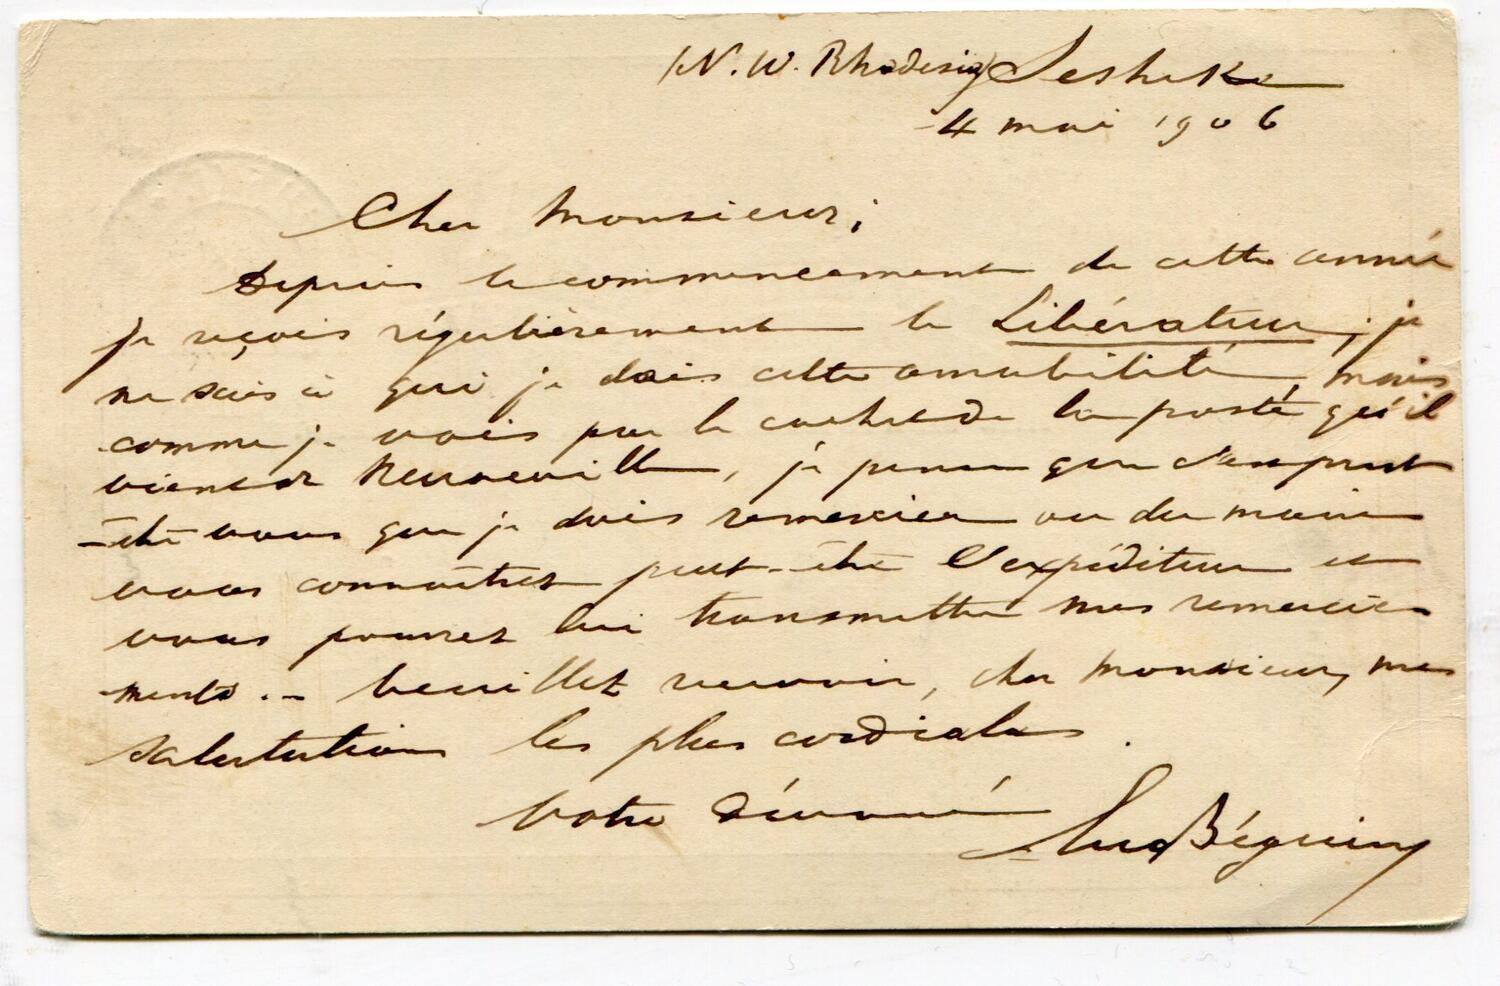 (N. W. Rhodesia) Sesheke
4 mai 1906
Cher Monsieur;
Depuis le commencement de cette année
je reçois régulièrement le Libérateur; je
ne sais à qui je dois cette amabilité, mais
comme je vois par le cachet de la poste qu'il
vient de Neuveville, je pense que c'est peut
-être vous que je dois remercier ou du moins
vous connaîtrez peut-être l'expéditeur et
vous pourrez lui transmettre mes remercie
ments. – Veuillez recevoir, cher Monsieur, mes
salutations les plus cordiales.
Votre dévoué
Béguin